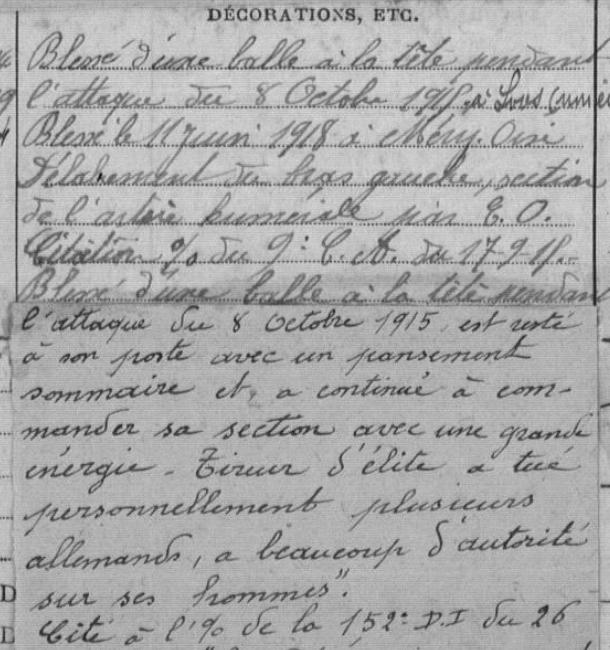 DÉCORATIONS, ETC.
Blessé d'une balle à la tête pendant
l'attaque du 8 Octobre 1915 à Loos
Blessé le 11 juin 1918 à Méry. Oise
Délabrement du bras gauche, section
de l'artère humérale par E. O.
Citation % du 9e C. A. du 17-9-15.
Blessé d'une balle à la tête pendant
l'attaque du 8 Octobre 1915, est resté
à son poste avec un pansement
sommaire et, a continué à com-
mander sa section avec une grande
énergie - Tireur d'élite a tué
personnellement plusieurs
allemands, a beaucoup d'autorité
sur ses hommes".
Cité à l'% de la 152e D.I du 26